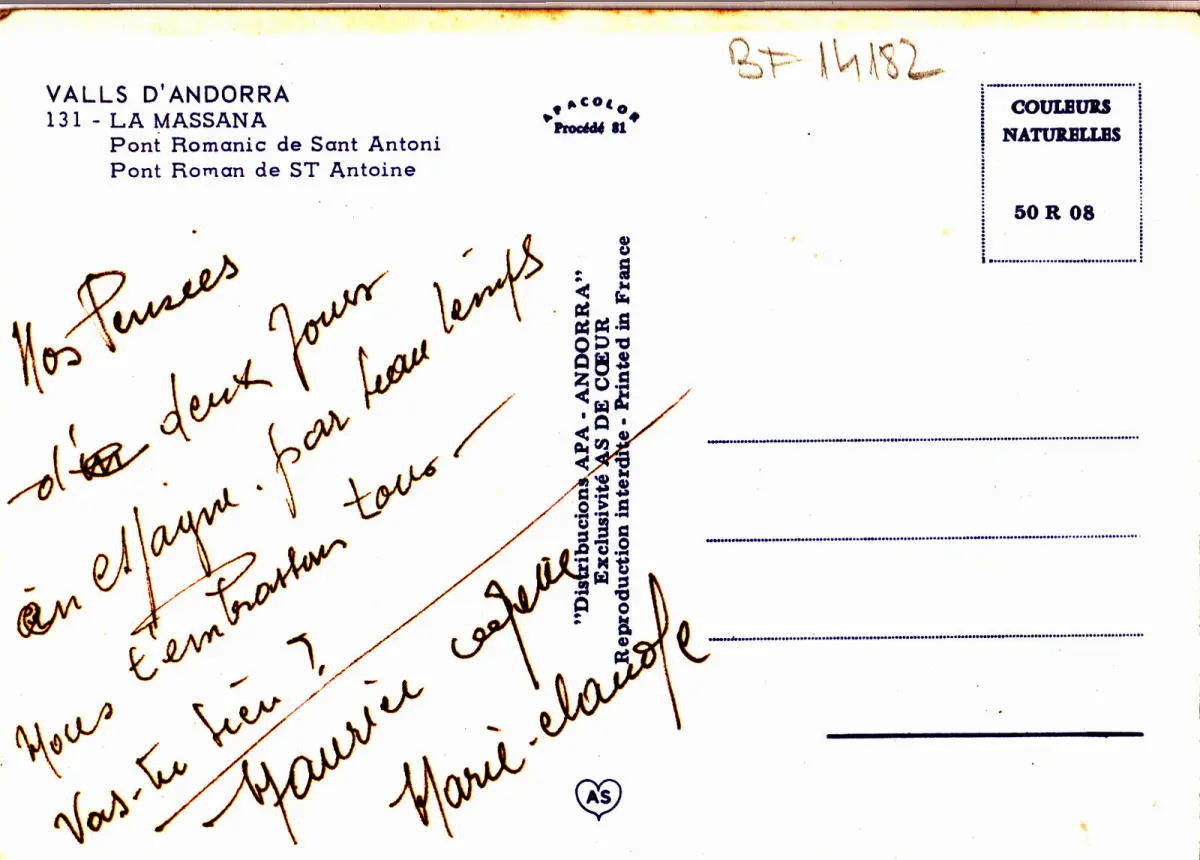 BF 14182
VALLS D'ANDORRA
131 - LA MASSANA
Pont Romanic de Sant Antoni
Pont Roman de ST Antoine
APACOLOR
Procédé 81
COULEURS
NATURELLES
50 R 08
Nos Pensées
d' deux Jours
en espagne. par beau temps
Nous t'embrassons tous.
Vas-tu bien ?
Maurice
Marie-claude
"Distribucions APA - ANDORRA"
Exclusivité AS DE CŒUR
Reproduction interdite - Printed in France
AS